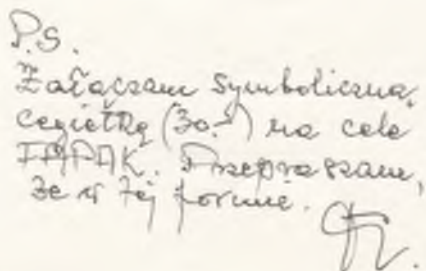 P.S.
Załączam symboliczną
cegiełkę (30.-) na cele
Przepraszam,
że w tej formie.